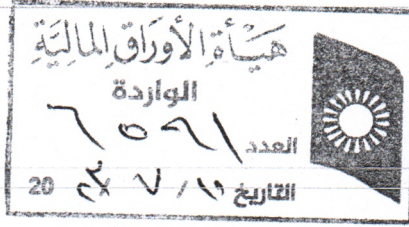 هيأة الأوراق المالية
الواردة
العدد ٦٥٦١
التاريخ ٧ / 20